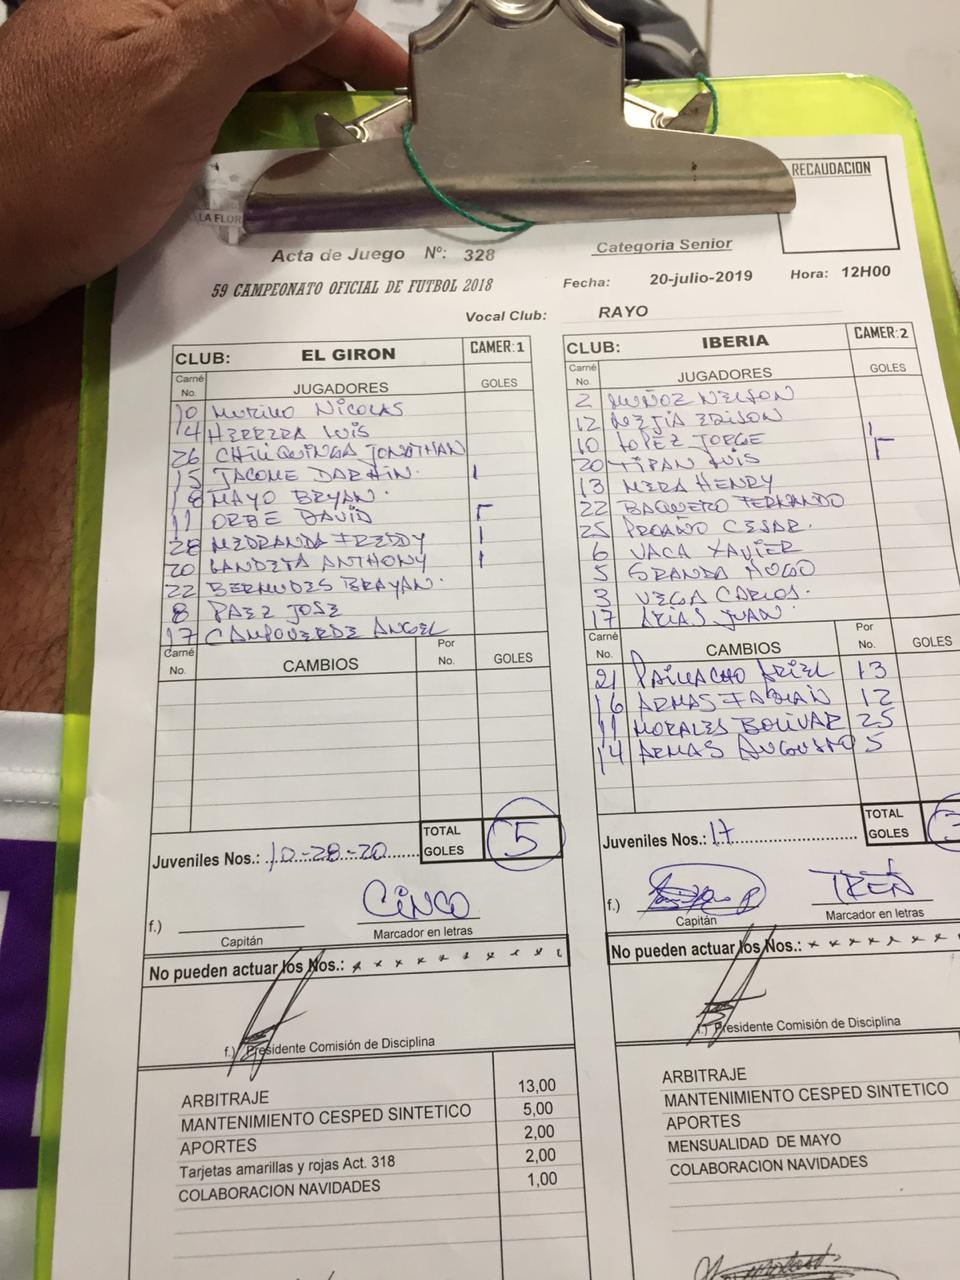 LA FLOR
RECAUDACION
Acta de Juego Nº: 328
Categoria Senior
59 CAMPEONATO OFICIAL DE FUTBOL 2018
Fecha: 20-julio-2019 Hora: 12H00
Vocal Club: RAYO
CLUB: EL GIRON CAMER:1
Carné No. JUGADORES GOLES
10 MURILLO NICOLAS
14 HERRERA LUIS
26 CHILIQUINGA JONATHAN
15 JACOME DARWIN. I
18 MAYO BRYAN.
11 ORBE DAVID
28 MEDRANDA FREDDY I
20 LANDETA ANTHONY I
22 BERMUDES BRAYAN.
8 PAEZ JOSE
17 CAMPOVERDE ANGEL
Carné No. CAMBIOS Por No. GOLES
TOTAL GOLES 5
Juveniles Nos.: 10-28-20
CINCO
f.) Capitán Marcador en letras
No pueden actuar los Nos.: x x x x x x x x x
f.) Presidente Comisión de Disciplina
ARBITRAJE 13,00
MANTENIMIENTO CESPED SINTETICO 5,00
APORTES 2,00
Tarjetas amarillas y rojas Act. 318 2,00
COLABORACION NAVIDADES 1,00
CLUB: IBERIA CAMER:2
Carné No. JUGADORES GOLES
2 MUÑOZ NELSON
12 MEJIA EDISON
10 LOPEZ JORGE I
20 TIPAN LUIS
13 MERA HENRY
22 BAQUERO FERNANDO
25 PROAÑO CESAR.
6 VACA XAVIER
5 GRANDA HUGO
3 VEGA CARLOS.
17 ARIAS JUAN.
Carné No. CAMBIOS Por No. GOLES
21 PAILLACHO ARIEL 13
16 ARMAS FABIAN 12
11 MORALES BOLIVAR 25
14 ARMAS AUGUSTO 5
TOTAL GOLES 3
Juveniles Nos.: 17
TRES
f.) Capitán Marcador en letras
No pueden actuar los Nos.: x x x x x x x x
f.) Presidente Comisión de Disciplina
ARBITRAJE
MANTENIMIENTO CESPED SINTETICO
APORTES
MENSUALIDAD DE MAYO
COLABORACION NAVIDADES